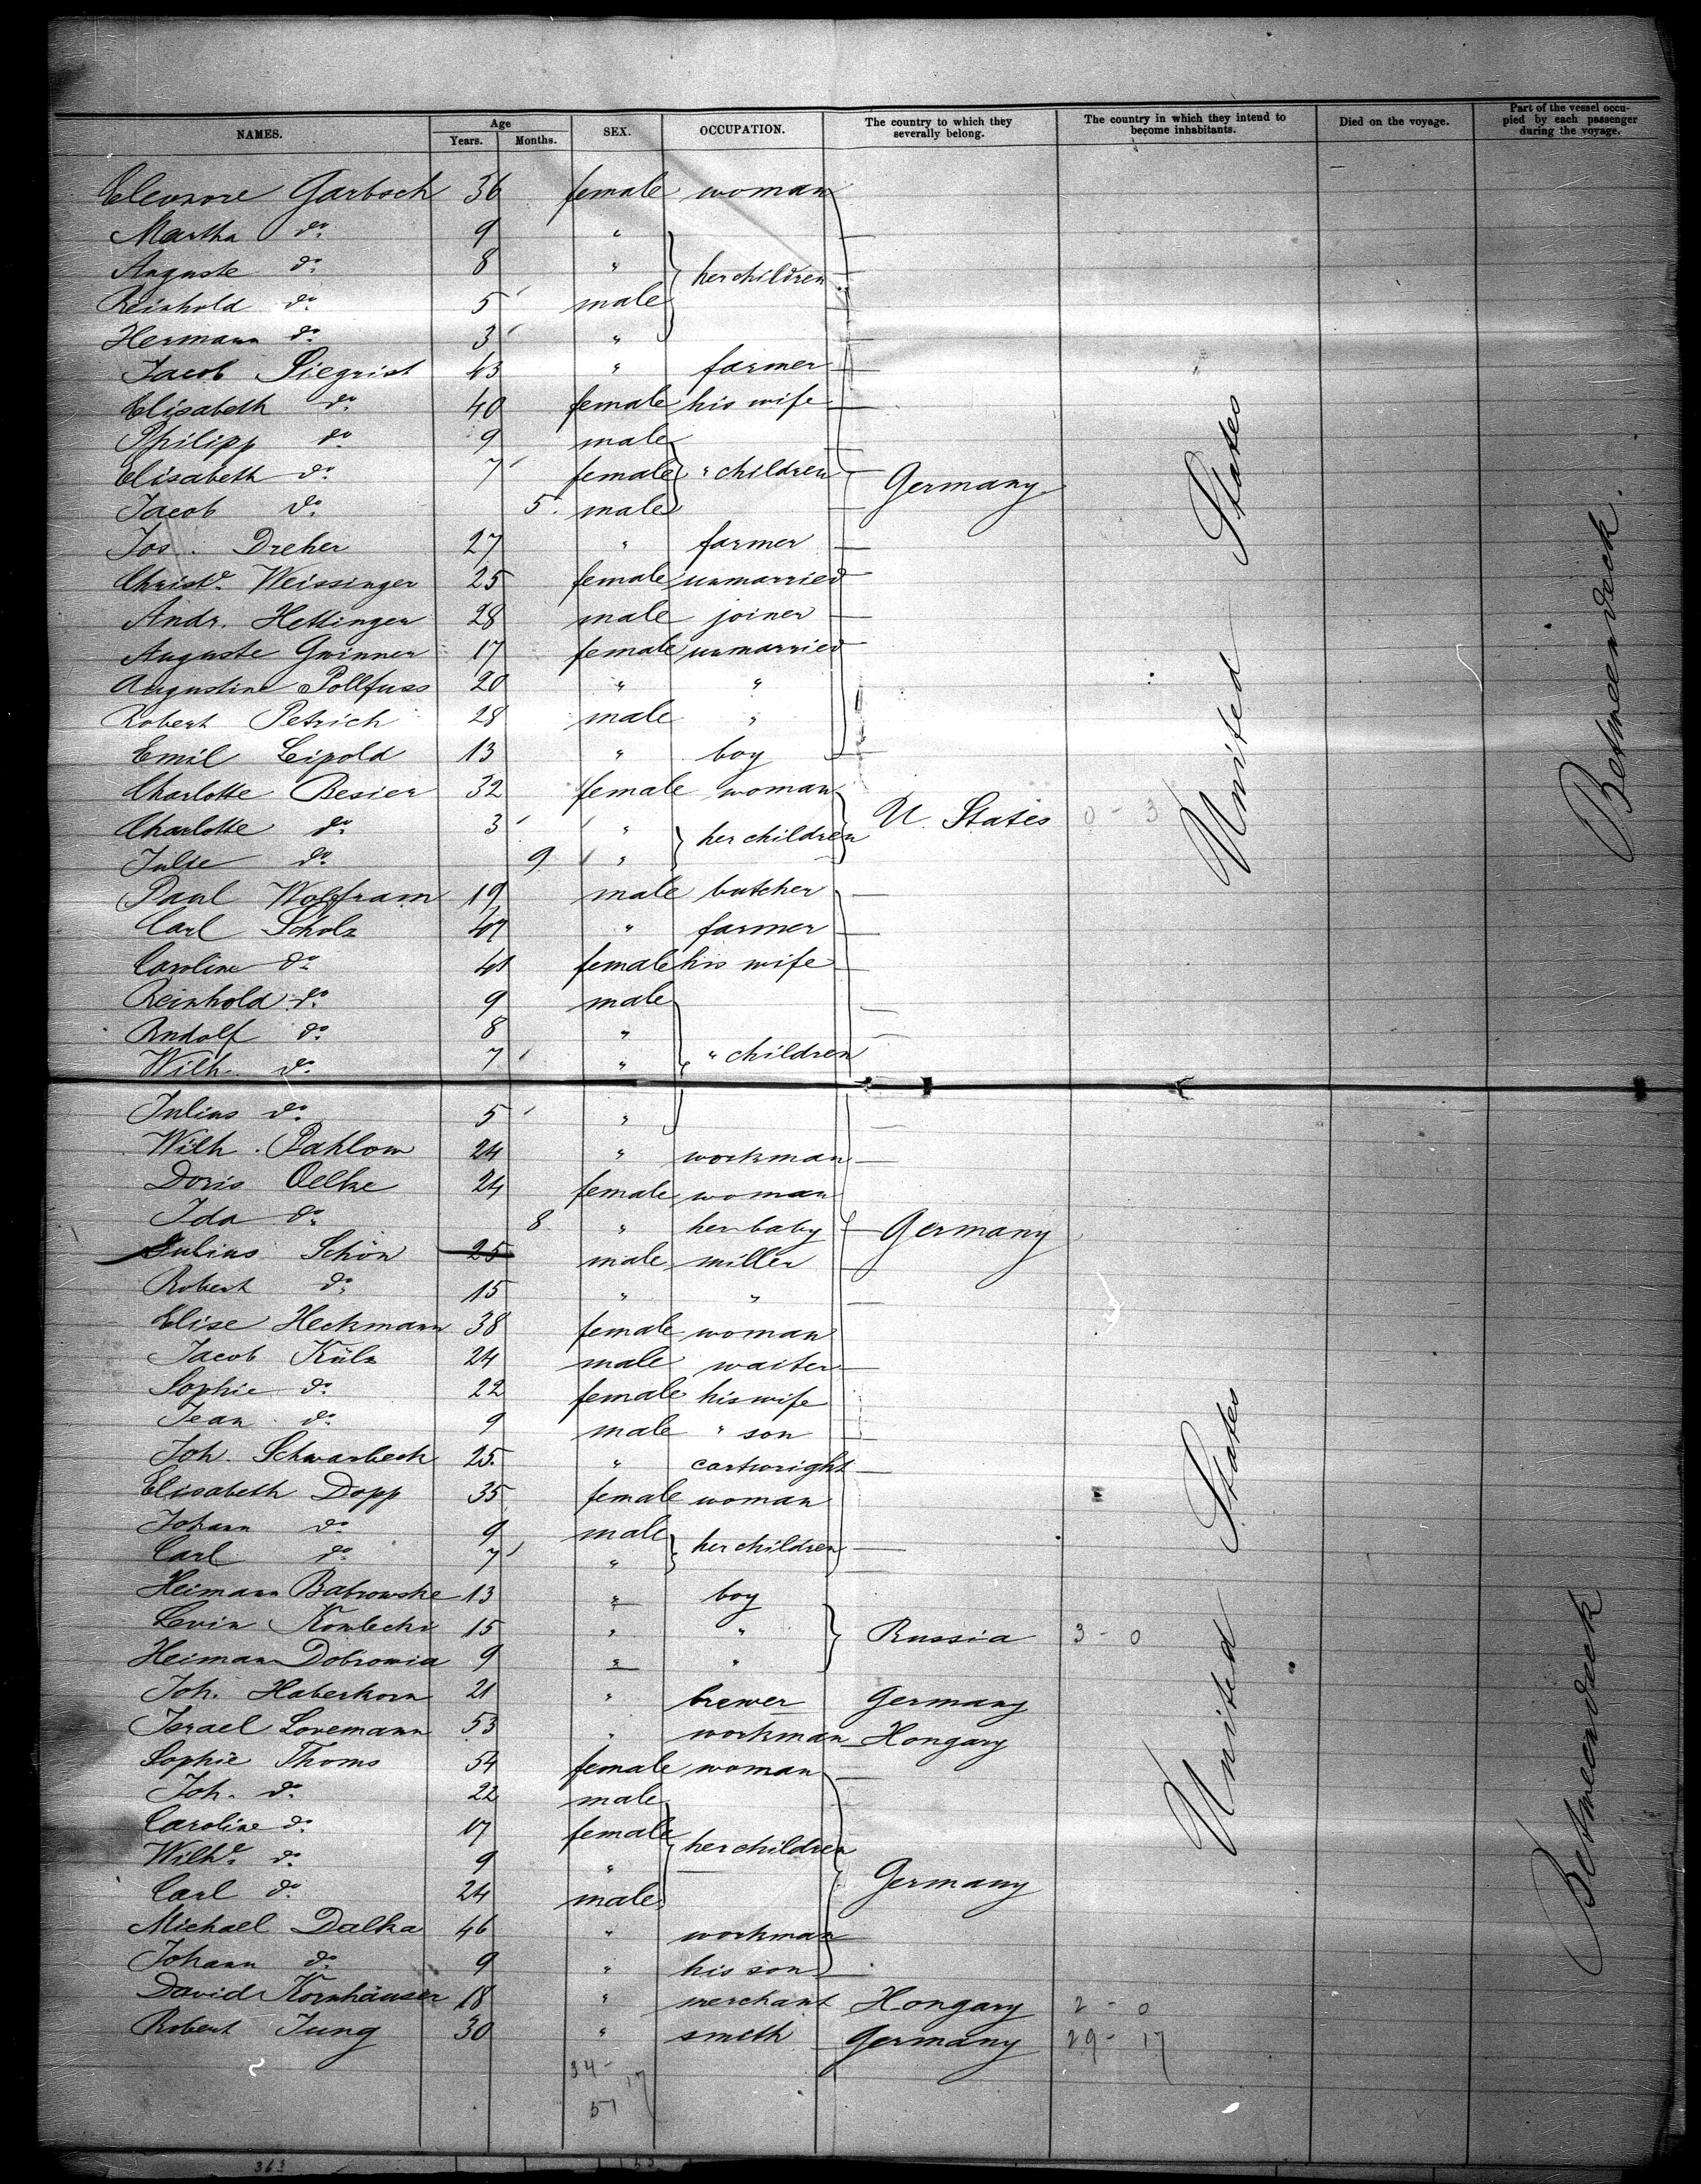 NAMES. Age Years. Months. SEX. OCCUPATION. The country to which they severally belong. The country in which they intend to become inhabitants. Died on the voyage. Part of the vessel occupied by each passenger during the voyage.
Eleonore Garbsch 36 female woman
Martha do 9 "
Auguste do 8 " her children
Reinhold do 5 male
Hermann do 3 "
Jacob Siegrist 43 " farmer
Elisabeth do 40 female his wife
Philipp do 9 male
Elisabeth do 7 female " children Germany
Jacob do 5. male
Jos. Dreher 27 " farmer
Christe. Weissinger 25 female unmarried
Andr. Hettinger 28 male joiner
Auguste Gwinner 17 female unmarried
Augustine Pollfuss 20 " "
Robert Petrich 28 male "
Emil Leipold 13 " boy
Charlotte Besier 32 female woman
Charlotte do 3 " her children U. States 0 - 3
Julie do 9 "
United States
Betweendeck.
Paul Wolfram 19 male butcher
Carl Scholz 47 " farmer
Caroline do 41 female his wife
Reinhold do 9 male
Rudolf do 8 "
Wilh. do 7 " " children
Julius do 5 "
Wilh. Pahlow 24 " workman
Doris Oelke 24 female woman
Ida do 8 " her baby Germany
Julius Schön 25 male miller
Robert do 15 " "
Elise Heckmann 38 female woman
Jacob Külz 24 male waiter
Sophie do 22 female his wife
Jean do 9 male " son
Joh. Schwarbeck 25. " cartwright
Elisabeth Dopp 35 female woman
Johann do 9 male her children
Carl do 7 "
Heimann Babrowske 13 " boy
Levin 15 " " Russia 3 - 0
Heimann Dobrowia 9 " "
Joh. Haberkorn 21 " brewer Germany
Israel Lovemann 53 " workman Hongary
Sophie Thoms 54 female woman
Joh. do 22 male
Caroline do 17 female her children
Wilhe. do 9 "
Carl do 24 male Germany
Michael Dalka 46 " workman
Johann do 9 " his son
David Kornhäuser 18 " merchant Hongary 2 - 0
Robert Jung 30 " smith Germany 29 - 17
United States
Betweendeck
34 - 17
51
363